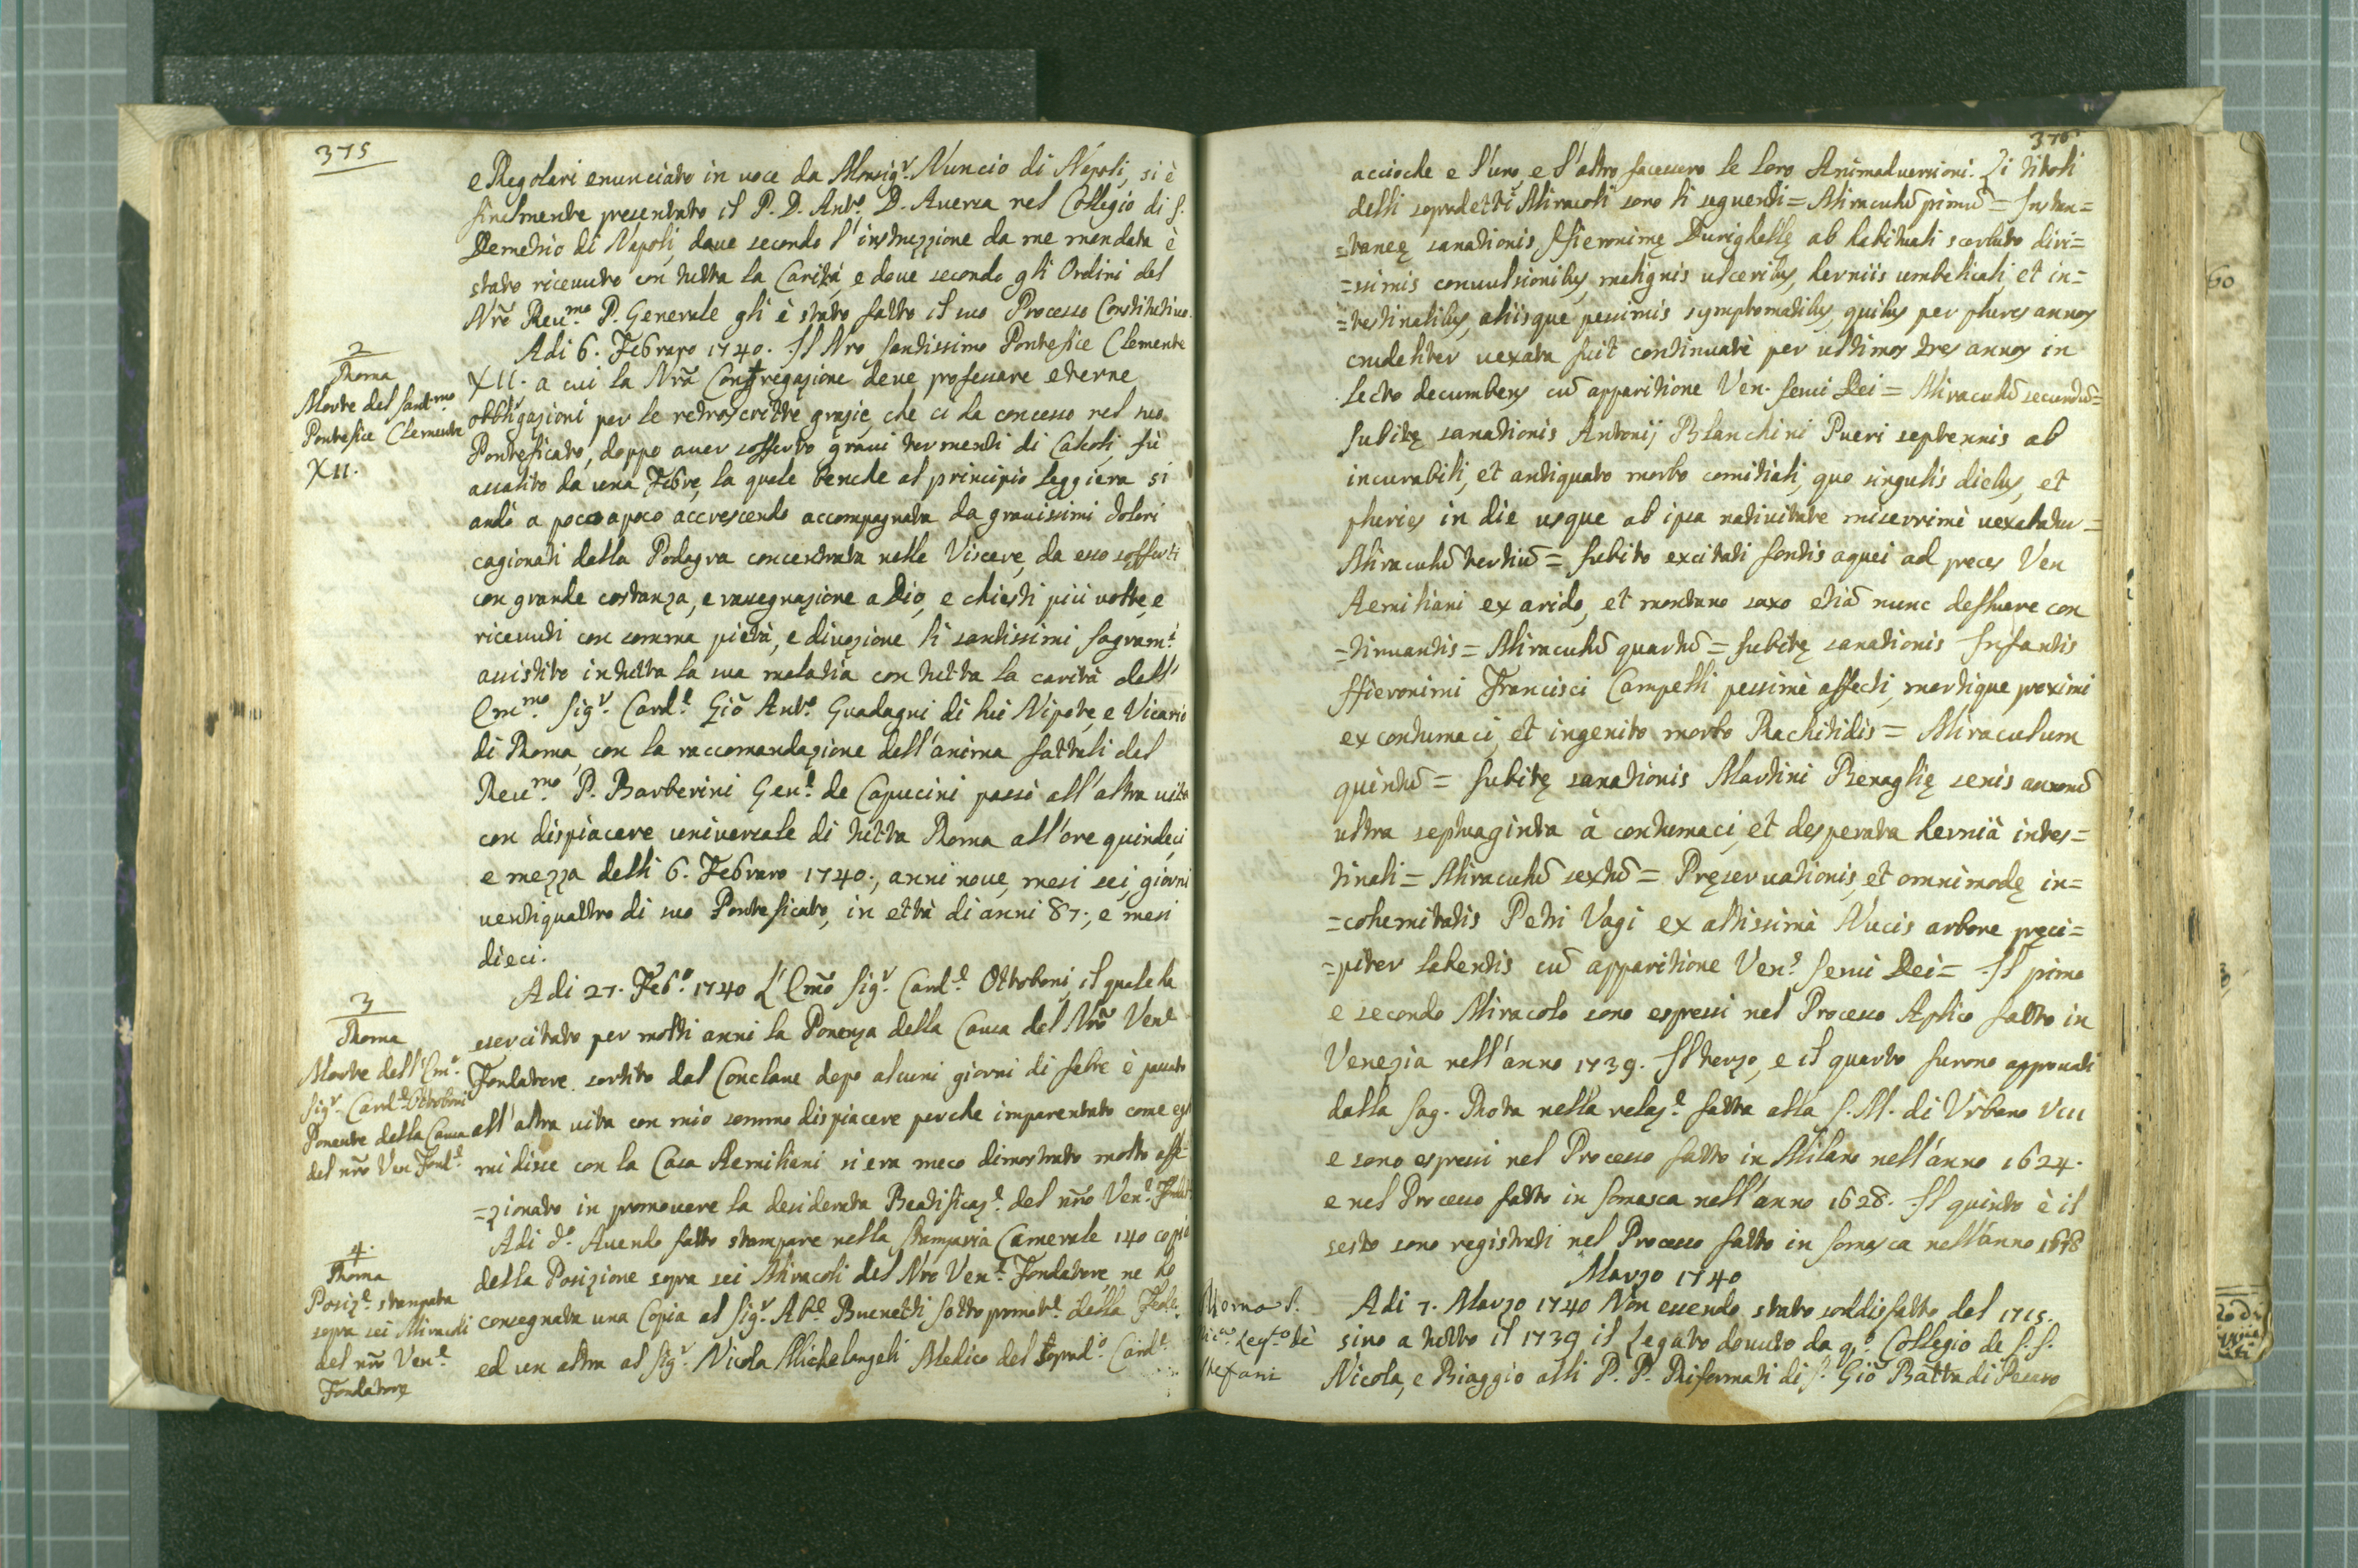 375
e Regolari enunciato in voce da Monsig.r Nuncio di Napoli, si è
finalmente presentato il P. D. Ant.o D. Aversa nel Collegio di S.
Demetrio di Napoli, dove secondo l'instruzzione da me mandata è
stato ricevuto con tutta la Carità, e dove secondo gli Ordini del
Nrõ Reu.mo P. Generale gli è stato fatto il suo Processo Constitutivo.
2
Roma
Morte del Sant.mo
Pontefice Clemente
XII.
Adi 6. Febraro 1740. Il Nro Santissimo Pontefice Clemente
XII. a cui la Nrã Congregazione deve professare eterne
obbligazioni per le retroscritte grazie, che ci ha concesso nel suo
Pontificato, doppo aver sofferto gravi tormenti di Calcoli, fù
assalito da una Febre, la quale benche al principio leggiera si
andò a poco a poco accrescendo accompagnata da gravissimi dolori
cagionati dalla Podagra concentrata nelle Viscere, da esso sofferti
con grande costanza, e rassegnazione a Dio, e chiesti più volte, e
ricevuti con somma pietà, e divozione li santissimi Sagram.ti
assistito in tutta la sua malatia con tutta la carità dall'
Em.mo Sig.r Card.l Giõ Ant.o Guadagni di lui Nipote, e Vicario
di Roma, con la raccomandazione dell'anima fattali dal
Reu.mo P. Barberini Gen.l de Capucini passò all'altra vita
con dispiacere universale di tutta Roma all'ore quindeci
e mezza delli 6. Febraro 1740., anni nove, mesi sei, giorni
ventiquattro di suo Pontificato, in età di anni 87., e mesi
dieci.
3
Roma
Morte dell'Em.o
Sig.r Card.l Ottoboni
Ponente della Causa
del nrõ Ven Fond.e
Adi 27. Feb.o 1740 L'Emõ Sig.r Card.l Ottoboni, il quale ha
esercitato per molti anni la Ponenza della Causa del Nrõ Ven.e
Fondatore sortito dal Conclave dopo alcuni giorni di febre è passato
all'altra vita con mio sommo dispiacere perche imparentato come
mi disse con la Casa Aemiliani si era meco dimostrato molto affe
=zionato in promovere la desiderata Beatificaz.e del nrõ Ven.e
4.
Roma
Posiz.e stampata
sopra sei Miracoli
del nrõ Ven.e
Fondatore
Adi d.o Avendo fatto stampare nella Stamparia Camerale 140 copie
della Posizione sopra sei Miracoli del Nro Ven.e Fondatore, ne ho
consegnata una Copia al Sig.r Ab.e Bucnetti sotto promot.e della Fede,
ed un altra al Sig.r Nicola Michelangeli Medico del Soprad.o Card.l
376
accioche e l'uno, e l'altro facessero le loro Animadversioni. Li titoli
delli sopradetti Miracoli sono li seguenti = Miraculũ primũ = Instan=
=taneę sanationis Hieronimę Durighellę ab habituali scorbuto diri=
=ssimis convulsionibus, malignis ulceribus, herniis umbilicali, et in=
=testinalibus, aliisque pessimis symptomatibus, quibus per plures annos
crudeliter vexata fuit continuatè per ultimos tres annos in
lecto decumbens cũ apparitione Ven. Servi Dei = Miraculũ secundũ=
Subitę sanationis Antonij Blanchini Pueri septennis ab
incurabili, et antiquato morbo comitiali, quo singulis diebus, et
pluries in die usque ab ipsa nativitate miserrimè vexabatur=
Miraculũ tertiũ = Subito excitati fontis aquei ad preces Ven
Aemiliani ex arido, et montano saxo etiã nunc defluere con
=tinuantis = Miraculũ quartũ = Subitę sanationis Infantis
Hieronimi Francisci Campelli pessimè affecti, mortique proximi
ex contumaci, et ingenito morbo Rachitidis = Miraculum
quintũ = Subitę sanationis Martini Benaglię senis annorũ
ultra septuaginta à contumaci, et desperata hernià intes=
tinali = Miraculũ sextũ = Pręservationis, et omnimodę in=
=cohemitatis Petri Vagi ex altissimà Nucis arbore pręci=
=piter labentis cũ apparitione Ven.e Servi Dei = Il primo
e secondo Miracolo sono espressi nel Processo Aplico fatto in
Venezia nell'anno 1739. Il terzo, e il quarto furono approvati
dalla Sag. Rota nella relaz.e fatta alla S. M. di Urbano VIII
e sono espressi nel Processo fatto in Milano nell'anno 1624.
e nel Processo fatto in Somasca nell'anno 1628. Il quinto è il
sesto sono registrati nel Processo fatto in Somasca nell'anno 1678
Marzo 1740
Roma S.
Leg.to dè
Adi 7. Marzo 1740 Non essendo stato soddisfatto dal 1715.
sino a tutto il 1739 il Legato dovuto da q.o Collegio de S.S.
Nicola, e Biaggio alli P. P. Riformati di S. Giõ Batta di Pesaro